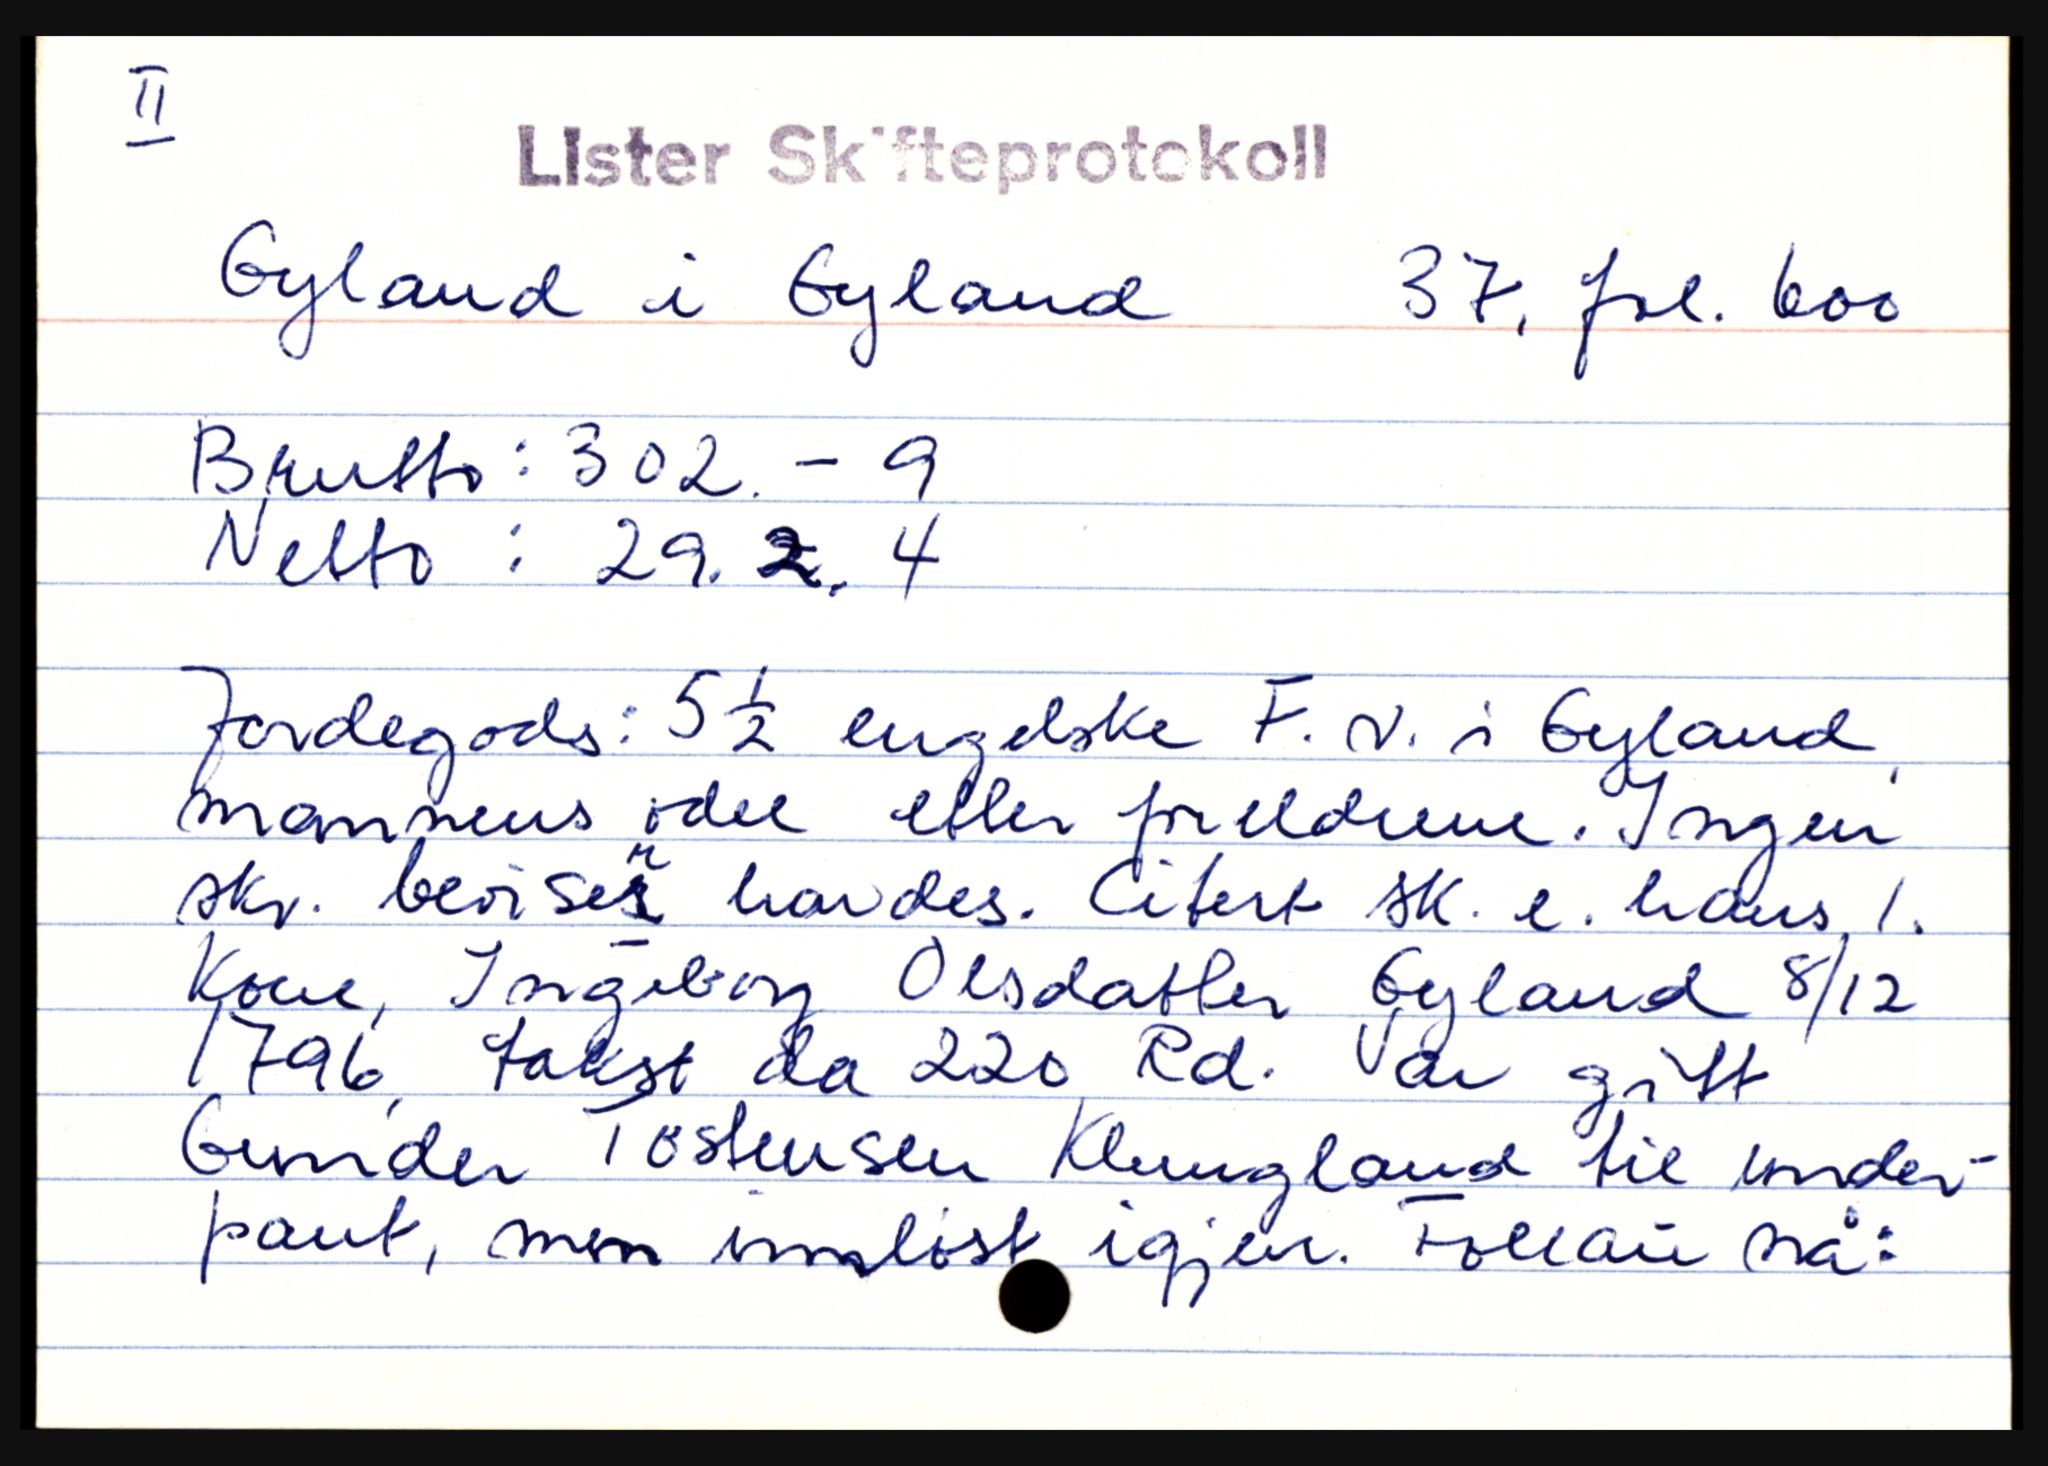 II
Lister Skifteprotokoll
Gyland i Gyland 37, fol. 600
Brutto: 302. - 9
Netto : 29. 2. 4
Jordegods: 5 1/2 engelske F. v. i Gyland,
mannens odel etter foreldrene. Ingen
skr. beviser havdes. Citert sk. e. hans 1.
Kone, Ingeborg Olsdatter Gyland 8/12
1796, takst da 220 Rd. Var gitt
Gunder Tostensen Klungland til under-
pant, men innløst igjen. Follaū nå: